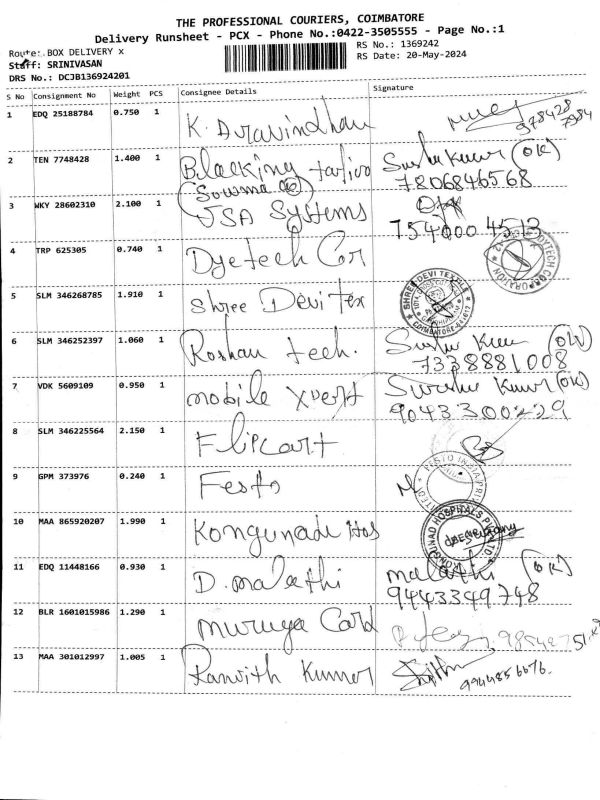 THE PROFESSIONAL COURIERS, COIMBATORE
Delivery Runsheet - PCX - Phone No.:0422-3505555 - Page No.:1
Route: BOX DELIVERY x
RS No.: 1369242
Staff: SRINIVASAN
RS Date: 20-May-2024
DRS No.: DCJB136924201
S No Consignment No Weight PCS Consignee Details Signature
1 EDQ 25188784 0.750 1 K. Aravindhan
2 TEN 7748428 1.400 1 Blacking (OK)
7806846568
3 WKY 28602310 2.100 1 JSA Systems
4 TRP 625305 0.740 1 Dyetech Cor DYTECH CORPORATION
5 SLM 346268785 1.910 1 Shree Devi Tex SHREE DEVI TEXTILE COIMBATORE
6 SLM 346252397 1.060 1 Roshan tech. (OK)
7338881008
7 VDK 5609109 0.950 1 mobile Xpert (OK)
9043300229
8 SLM 346225564 2.150 1 Flipcart
9 GPM 373976 0.240 1 Festo FESTO INDIA
10 MAA 865920207 1.990 1 Kongunadu Hos KONGUNAD HOSPITALS PVT LTD
11 EDQ 11448166 0.930 1 D. malathi malathi (OK)
9443349748
12 BLR 1601015986 1.290 1 muruga Card
13 MAA 301012997 1.005 1 Ranvith Kumar
9944856676.